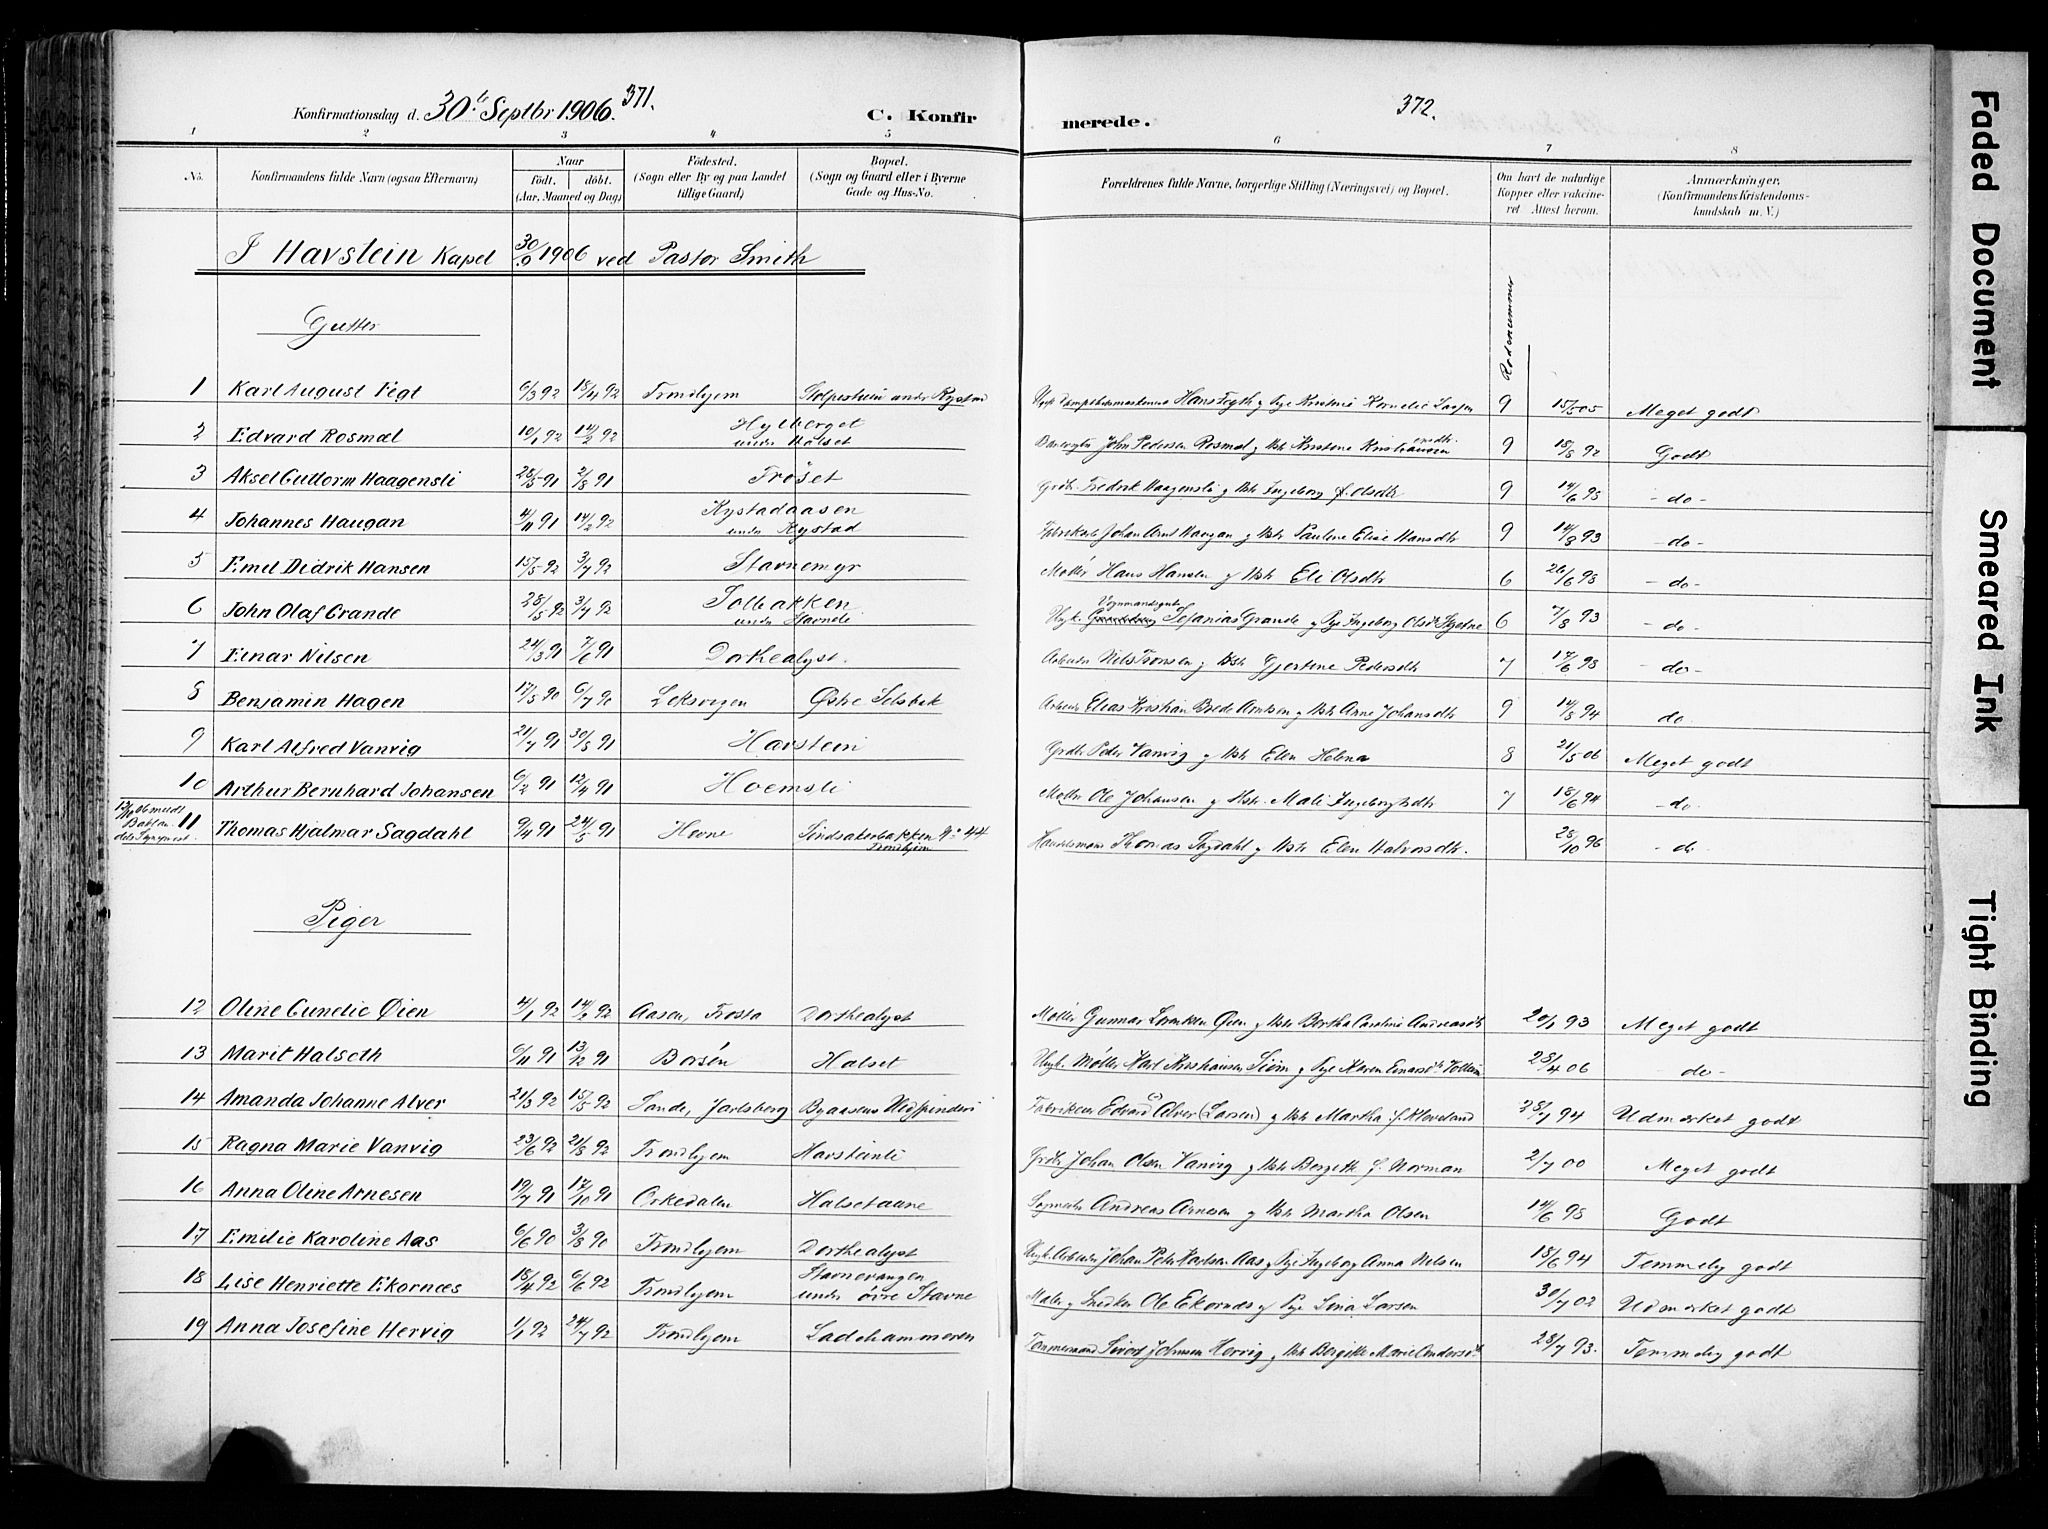 Konfirmationsdag d. 30te Septbr 1906. 371.
C. Konfir
1 2 3 4 5
No. Konfirmandens fulde Navn (ogsaa Efternavn) Naar født. døbt. (Aar, Maaned og Dag) Fødested. (Sogn eller By og paa Landet tillige Gaard) Bopæl. (Sogn og Gaard eller i Byerne Gade og Hus-No.
I Havstein Kapel 30/9 1906 ved Pastor Smith
Gutter
1 Karl August Fegt 6/3 92 18/4 92 Trondhjem under Kystad
2 Edvard Rosmæl 10/1 92 14/2 92 Hylberget under Halset
3 Aksel Guttorm Haagensli 28/5 91 2/8 91 Frøset
4 Johannes Haugan 4/11 91 14/2 92 Kystadaasen under Kystad
5 Emil Didrik Hansen 15/5 92 3/7 92 Stavnemyr
6 John Olaf Grande 28/5 92 3/7 92 Solbakken under Stavneli
7 Einar Nilsen 24/3 91 7/6 91 Dorthealyst.
8 Benjamin Hagen 17/5 90 6/7 90 Leksvigen Østre Selsbak
9 Karl Alfred Vanvig 21/7 91 30/8 91 Havstein
10 Arthur Bernhard Johansen 6/2 91 12/4 91 Hoemsli
11 Thomas Hjalmar Sagdahl 9/4 91 24/5 91 Hevne 44 Trondhjem
Piger
12 Oline Gunelie Øien 4/1 92 14/2 92 Aasen, Frosta Dorthealyst
13 Marit Halseth 6/11 91 13/12 91 Børsen Halset
14 Amanda Johanne Alver 21/3 92 15/5 92 Sande, Jarlsberg Byaasens Uldspinderi
15 Ragna Marie Vanvig 23/6 92 21/8 92 Trondhjem Havsteinli
16 Anna Oline Arnesen 19/7 91 17/10 91 Orkedalen Halsetaune
17 Emilie Karoline Aas 6/6 90 3/8 90 Trondhjem Dorthealyst
18 Lise Henriette Ekornæs 18/4 92 6/6 92 Trondhjem Stavnevangen under øvre Stavne
19 Anna Josefine Hervig 1/1 92 24/7 92 Trondhjem Ladehammeren
372.
merede.
6 7 8
Forældrenes fulde Navne, borgerlige Stilling (Næringsvei) og Bopæl. Om havt de naturlige Kopper eller vaccineret Attest herom. Anmærkninger. (Konfirmandens Kristendomskundskab m. V.)
Rodenummer
Hans Fegth og Pige Kornelie 9 15/6 05 Meget godt
John Pedersen Rosmæl og Hstr Kristine Kristiansen 9 18/8 92 Godt
Grdbr. Fredrik Haagensli og Hstr Ingeborg f. Olsdtr 9 14/6 95 - do -
Johan Arnt Haugan og Hstr Pauline Elise Hansdtr 9 14/8 93 - do -
Møller Hans Hansen og Hstr Eli Olsdtr 6 26/6 93 - do -
Ungk. Vognmandsgut Sefanias Grande og Pige Ingeborg Olsdtr 6 7/8 93 - do -
Arbeider Nils Tronsen og Hstr Gjertine Pedersdtr 7 17/6 93 - do -
Arbeider Elias Kristian Brede Arntsen og Hstr Anne Johansdtr 9 14/8 94 do
Grdbr Peder Vanvig og Hstr Elen Helena 8 21/5 06 Meget godt
Møller Ole Johansen og Hstr. Mali Ingebrigtsdtr 7 18/6 94 - do -
Handelsmand Thomas Sagdahl og Hstr Elen Halvorsdtr. 28/10 96 - do -
Møller Gunnar Lorentsen Øien og Hstr Bertha Caroline Andreasdtr 20/1 93 Meget godt
Ungk. Møller Karl Kristiansen og Pige Karen Einarsdtr 28/4 06 - do -
Edvard Alver (Larsen) og Hstr Martha f. Kleveland 28/7 94 Udmerket godt
Grdbr Johan Olsen Vanvig og Hstr Bergitte f. Norman 2/7 00 Meget godt
Andreas Arnesen og Hstr Martha Olsen 14/6 98 Godt
Ungk. Arbeider Johan Peter Karlsen Aas og Pige Ingeborg Anna Nilsen 18/6 94 Temmelig godt
Maler og Snedker Ole Ekornæs og Pige Lina Larsen 30/7 02 Udmerket godt
Tømmermand Sivert Johnsen Hervig og Hstr Bergitte Marie Andersdtr 28/7 93. Temmelig godt
Faded Document
Smeared Ink
Tight Binding